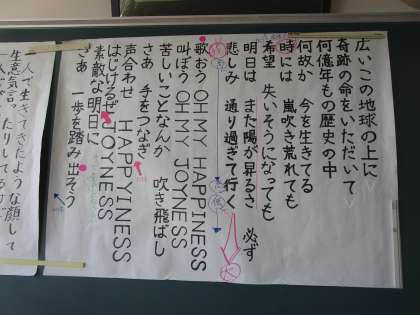 広いこの地球の上に
奇跡の命をいただいて
何億年もの歴史の中
何故か 今を生きてる
時には 嵐吹き荒れても
希望 失いそうになっても
明日は また陽が昇るさ 必ず
悲しみ 通り過ぎて行く
歌おう OH MY HAPPINESS
叫ぼう OH MY JOYNESS
苦しいことなんか 吹き飛ばし
さあ 手をつなぎ
声合わせ HAPPYINESS
はじけるば JOYNESS
素敵な明日に
さあ 一歩を踏み出そう
一人で生きてきたような顔して
生意気言ったりしてるけど